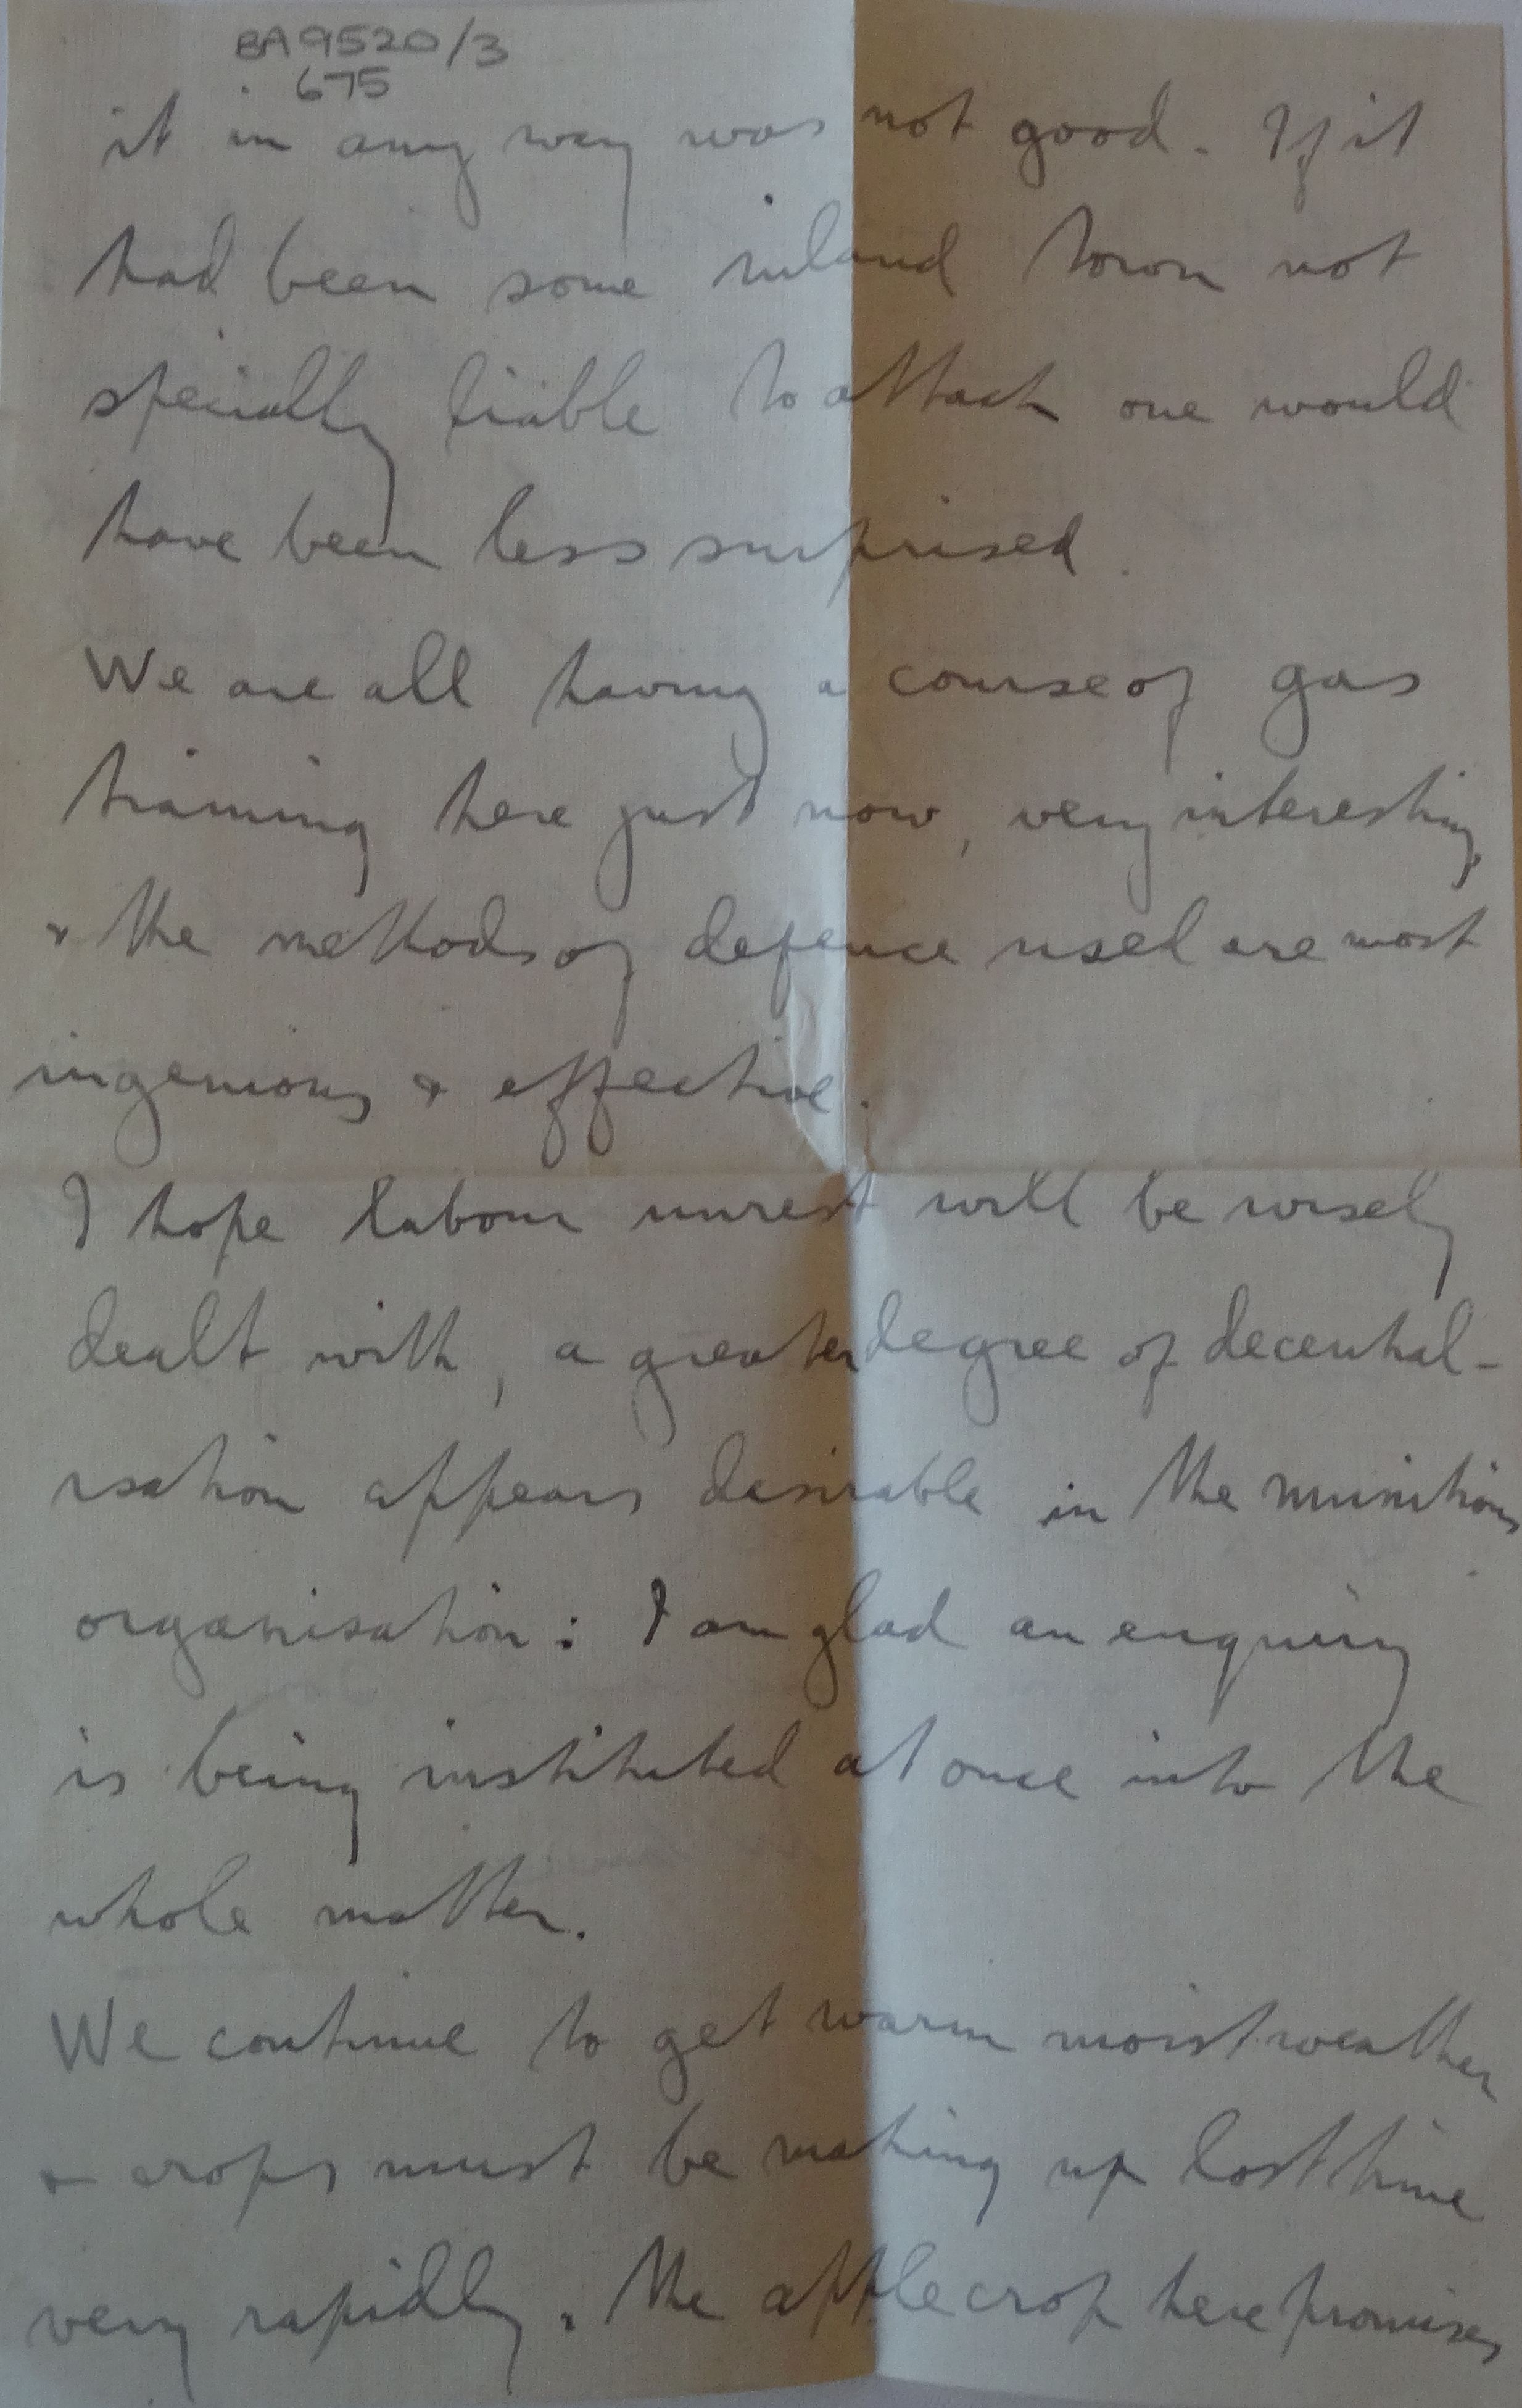 BA9520/3
675
it in any way was not good. If it
had been some inland town not
specially liable to attack one would
have been less surprised.
We are all having a course of gas
training here just now, very interesting,
& the methods of defence used are most
ingenious & effective.
I hope labour unrest will be wisely
dealt with, a greater degree of decentral-
isation appears desirable in the munitions
organisation: I am glad an enquiry
is being instituted at once into the
whole matter.
We continue to get warm moist weather
& crops must be making up lost time
very rapidly. The apple crop here promises